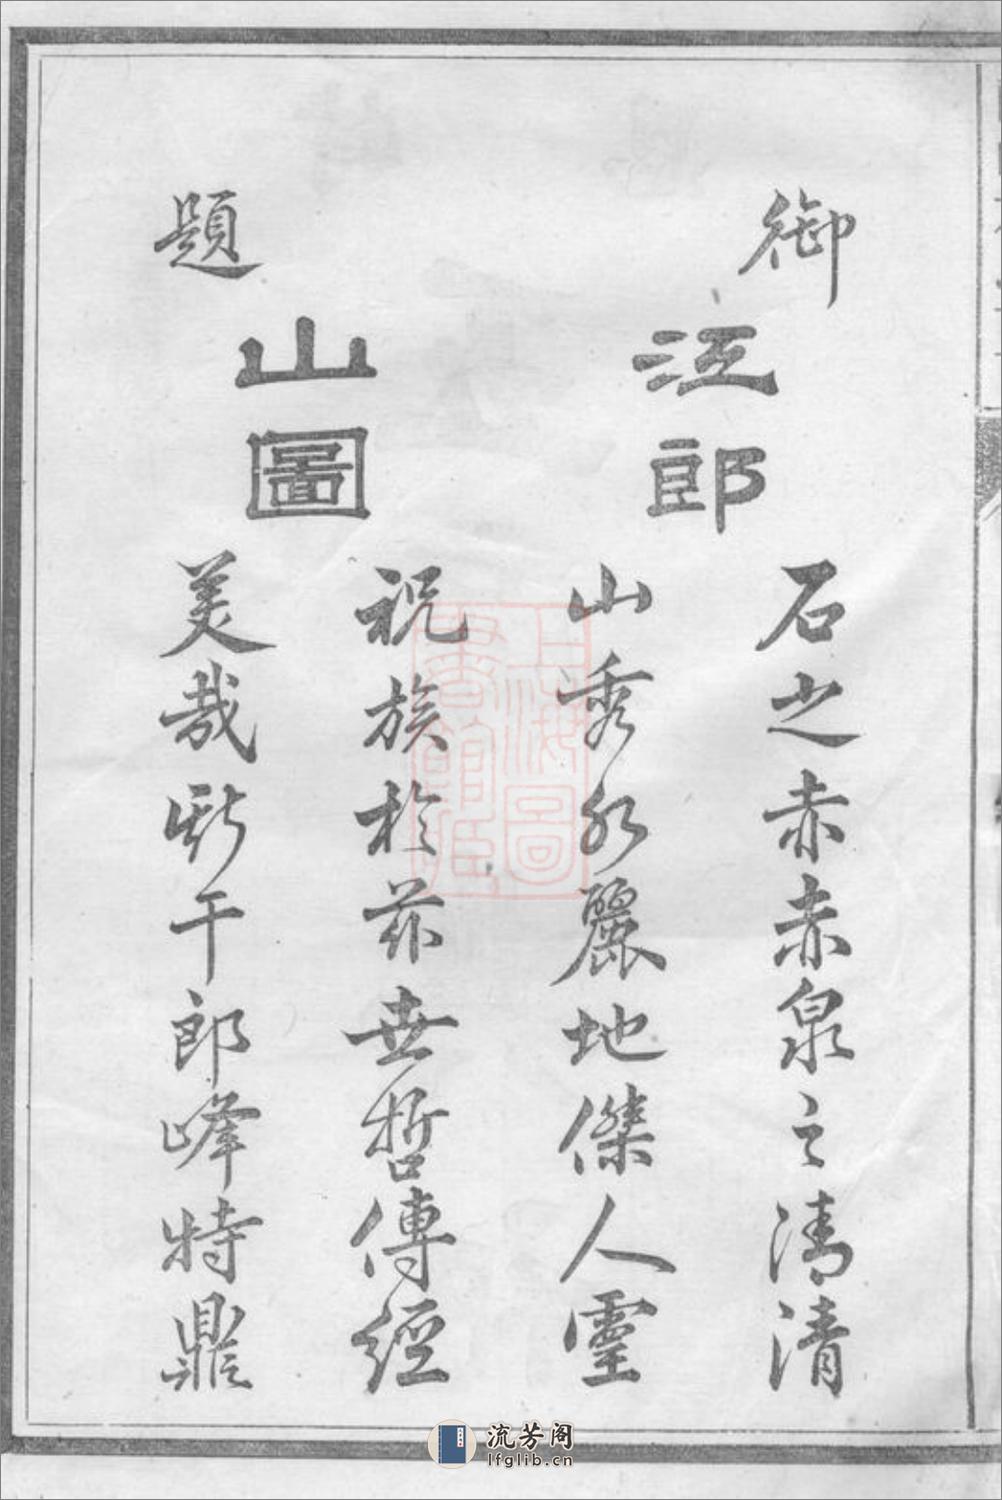 御題
江郎山圖
石之赤赤泉之清清
山秀水麗地傑人靈
祝族於茲世哲傳經
美哉斯干郎峰特鼎
上海圖書館藏
流芳阁
lfglib.cn